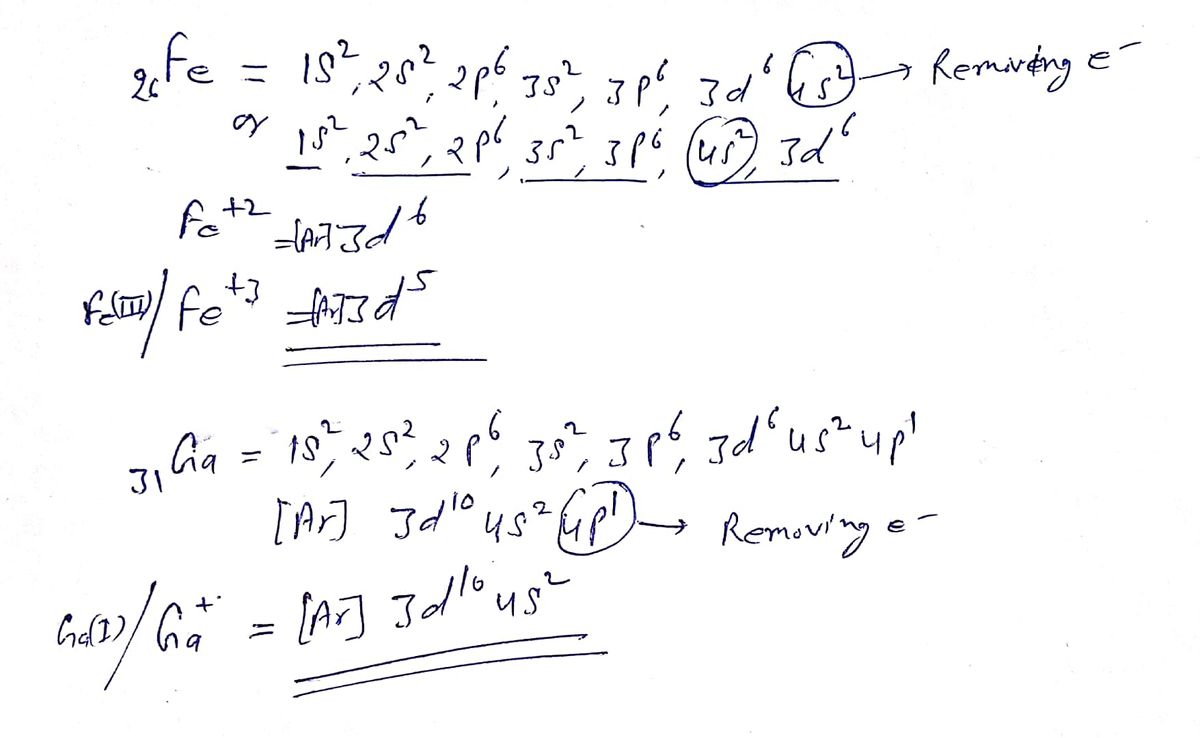 ₂₆Fe = 1S², 2S², 2p⁶, 3s², 3p⁶, 3d⁶ 4s² → Remiving e⁻
or 1s², 2s², 2p⁶, 3s², 3p⁶, 4s², 3d⁶
Fe⁺² =[Ar] 3d⁶
Fe(III)/Fe⁺³ =[Ar] 3d⁵
₃₁Ga = 1S², 2S², 2p⁶, 3s², 3p⁶, 3d⁶ 4s² 4p¹
[Ar] 3d¹⁰ 4s² 4p¹ → Removing e⁻
Ga(I)/Ga⁺ = [Ar] 3d¹⁰ 4s²